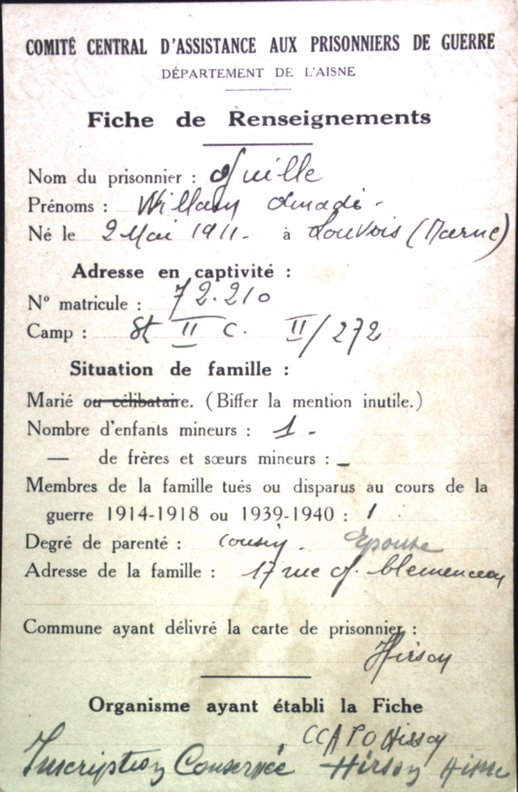 COMITÉ CENTRAL D'ASSISTANCE AUX PRISONNIERS DE GUERRE
DÉPARTEMENT DE L'AISNE
Fiche de Renseignements
Nom du prisonnier :
Prénoms : Willam Amadé -
Né le 2 Mai 1911 - à Louvois (Marne)
Adresse en captivité :
N° matricule : 72.210
Camp : St II C. II/272
Situation de famille :
Marié ou célibataire. (Biffer la mention inutile.)
Nombre d'enfants mineurs : 1 -
— de frères et sœurs mineurs : –
Membres de la famille tués ou disparus au cours de la
guerre 1914-1918 ou 1939-1940 : 1
Degré de parenté : cousin - Epouse
Adresse de la famille : 17 rue G. Clemenceau
Commune ayant délivré la carte de prisonnier :
Hirson
Organisme ayant établi la Fiche
CCAPG Hirson
Inscription Conservée Hirson Aisne